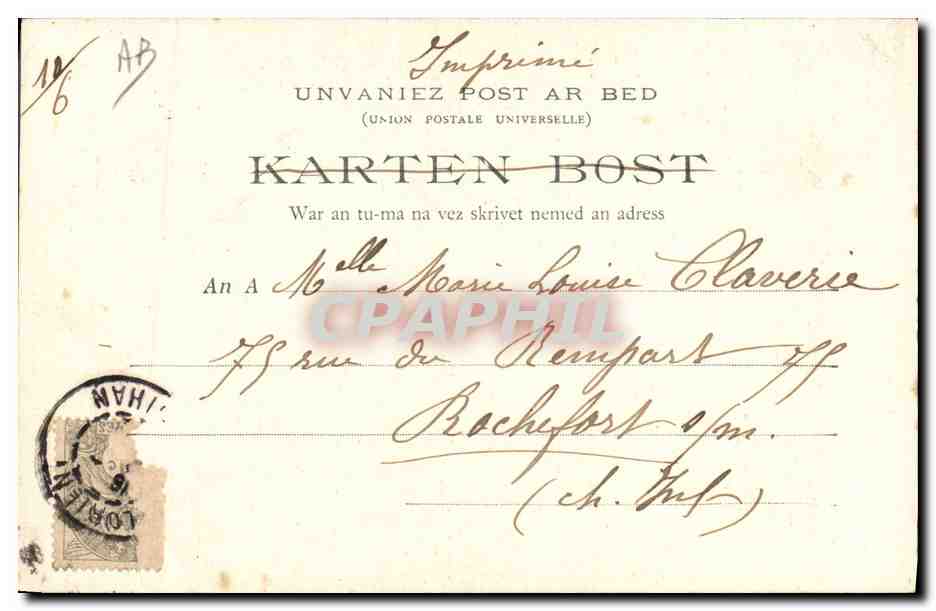 12/6
AB
Imprimé
UNVANIEZ POST AR BED
(UNION POSTALE UNIVERSELLE)
KARTEN BOST
War an tu-ma na vez skrivet nemed an adress
An A Melle Marie Louise Claverie
CPAPHIL
75 rue du Rempart 75
Rochefort s/m.
(Ch. Inf)
LORIENT
IHAN